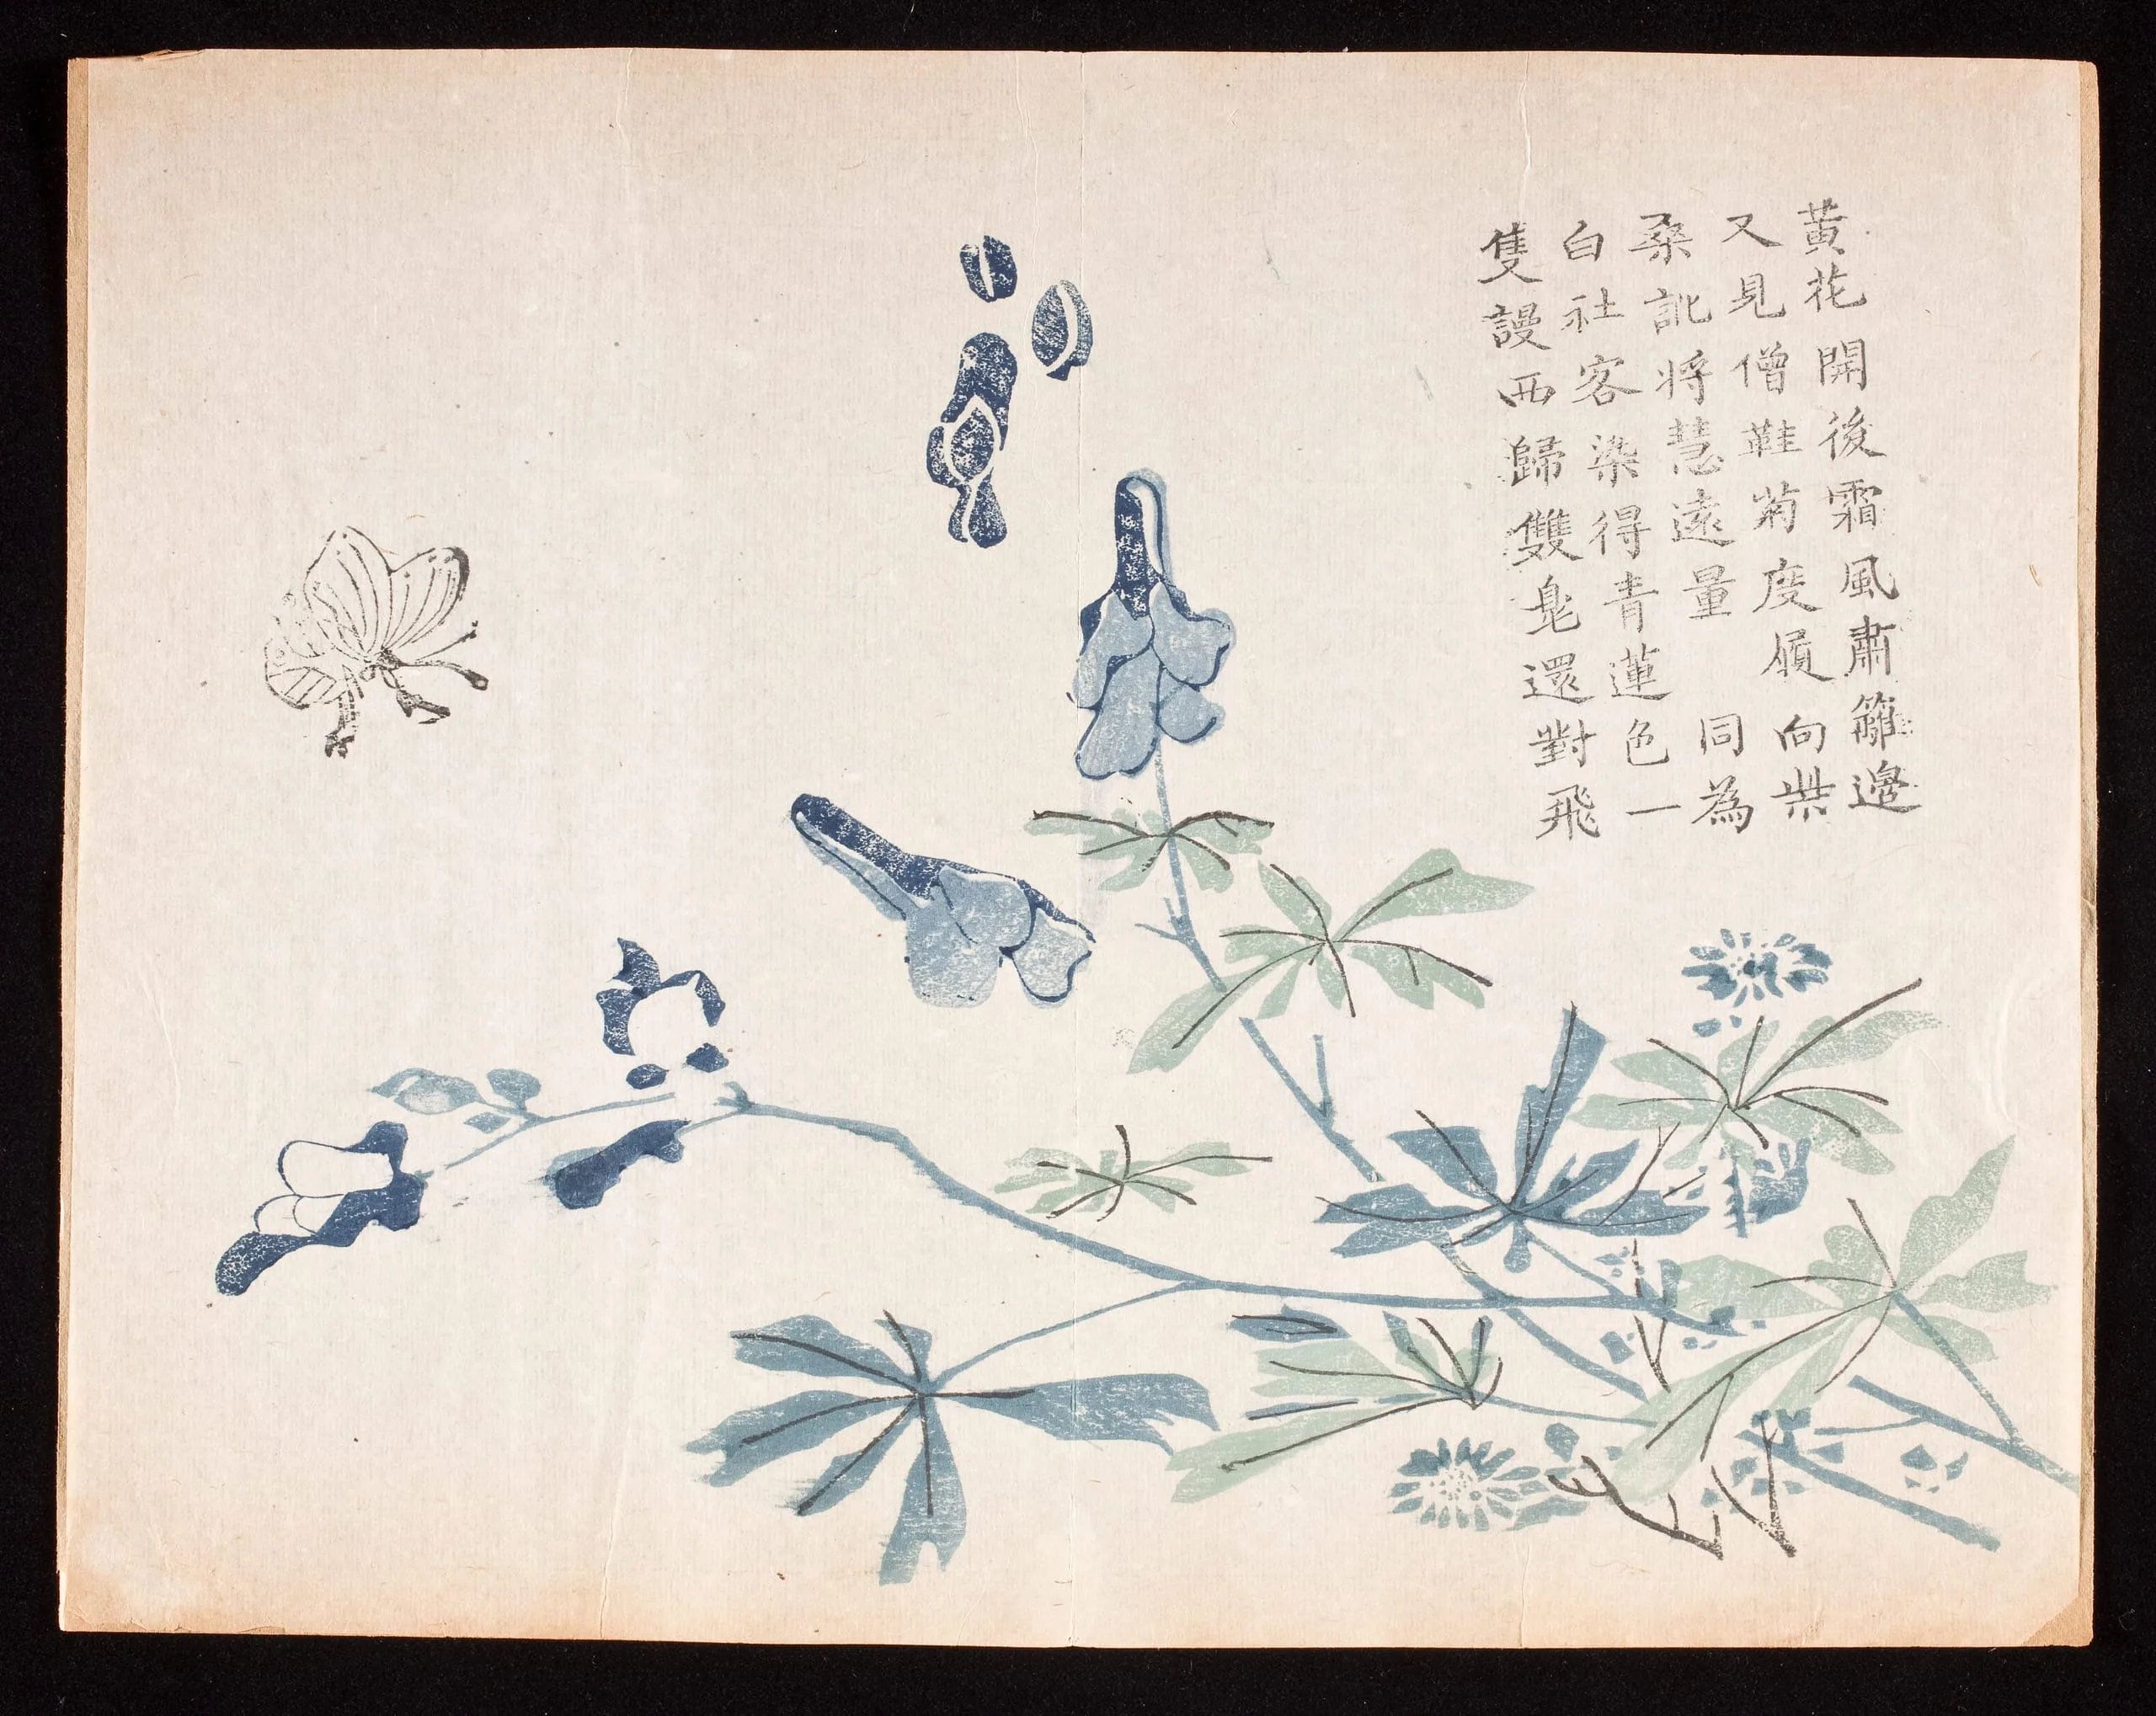 黄花開後霜風肅籬邊
又見僧鞋菊度向柴
桑訛將慧遠量 同為
白社客染得青蓮色一
隻謾西歸雙鳧還對飛